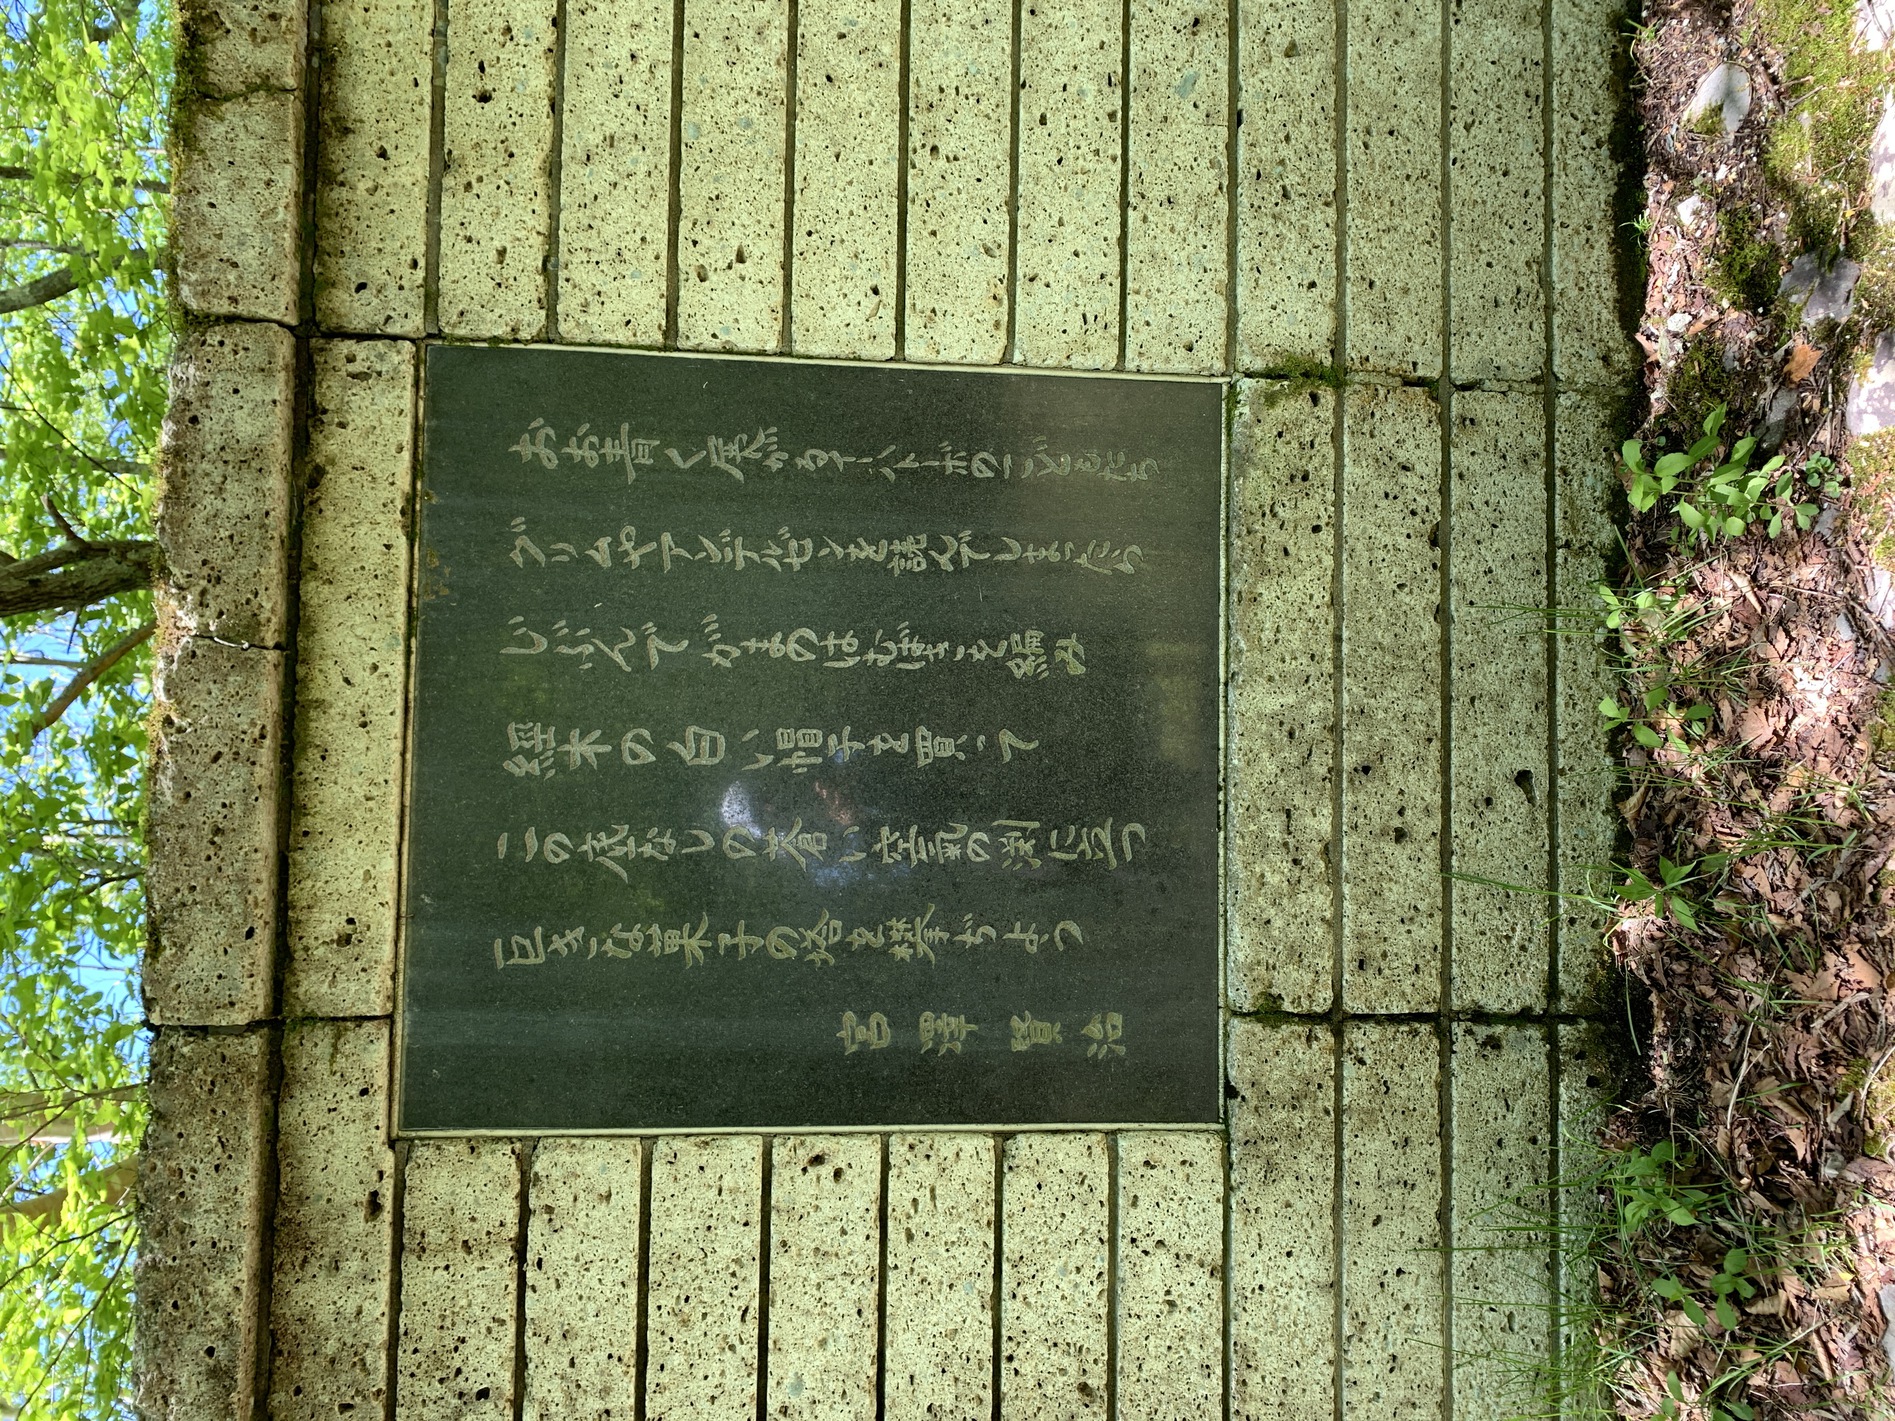 おお青く展がるイーハトーボのこどもたち
グリムやアンデルゼンを読んでしまったら
じぶんでがまのはむばきを編み
経木の白い帽子を買って
この底なしの蒼い空気の淵に立つ
巨きな菓子の塔を攀ぢよう
宮澤賢治